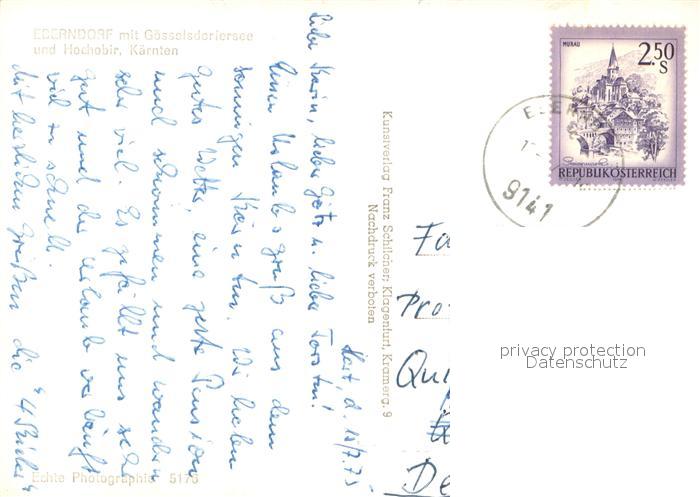 EBERNDORF mit Gösselsdorfersee
und Hochobir, Kärnten
d. 15/7.75
Liebe Karin, lieber Götz u. lieber Torsten!
Einen Urlaubsgruß aus dem
sonnigen Kärnten. Wir haben
gutes Wetter, eine gute Pension
und schwimmen und wandern
sehr viel. Es gefällt uns sehr
gut und der Urlaub verläuft
viel zu schnell.
Mit herzlichen Grüßen die "4
Echte Photographie 5176
Kunstverlag Franz Schilcher, Klagenfurt, Kramerg. 9
Nachdruck verboten
MURAU
2.50
S
REPUBLIK ÖSTERREICH
9141
Fa
Pro
Qu
De
privacy protection
Datenschutz